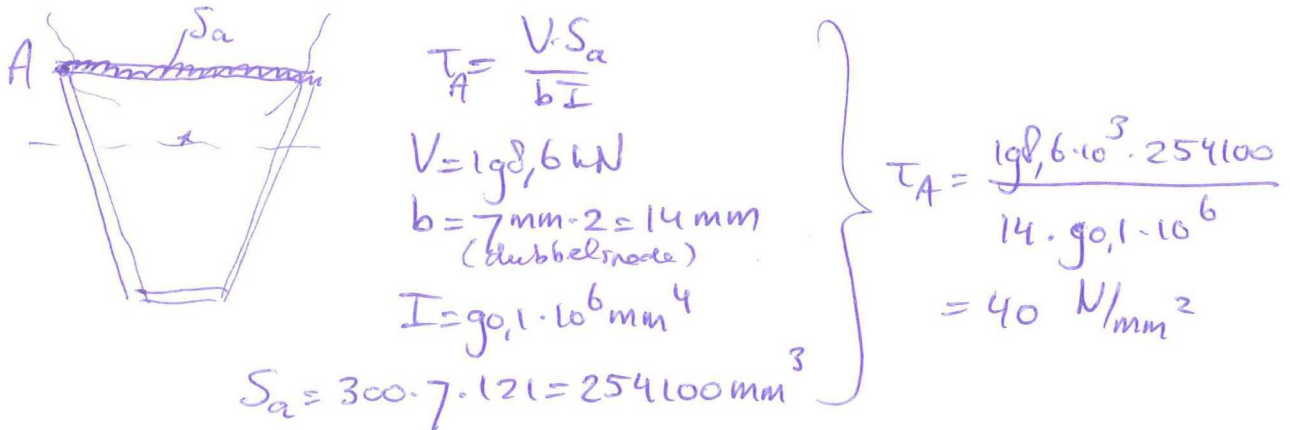 A Sa
τ_A = V·Sa / bI
V = 198,6 kN
b = 7mm·2 = 14 mm
(dubbelsnede)
I = 90,1·10⁶ mm⁴
Sa = 300·7·121 = 254100 mm³
τ_A = 198,6·10³·254100 / 14·90,1·10⁶
= 40 N/mm²